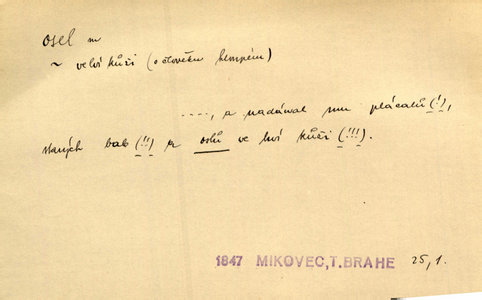 osel m
~ ve lví kůži (o člověku hloupém)
...., a nadával mu plácalů (!),
starých bab (!!) a oslů ve lví kůži (!!!).
1847 MIKOVEC, T. BRAHE 25,1.